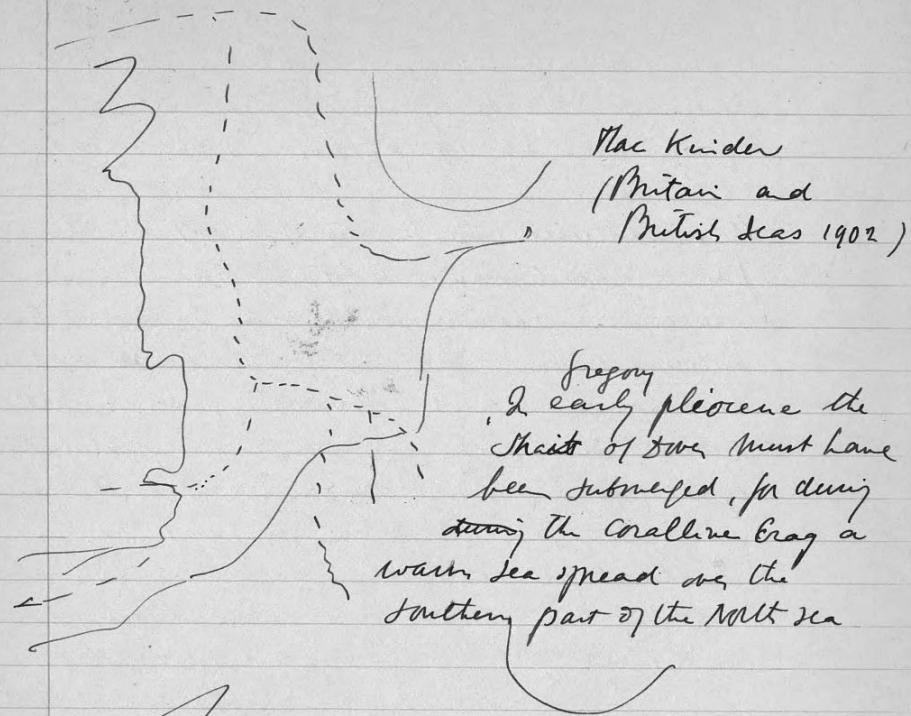 Mac Kinder
(Britain and
British Seas 1902)
Gregory
In early pliocene the
Straits of Dover must have
been submerged, for during
during the Coralline Crag a
warm sea spread over the
southern part of the North Sea